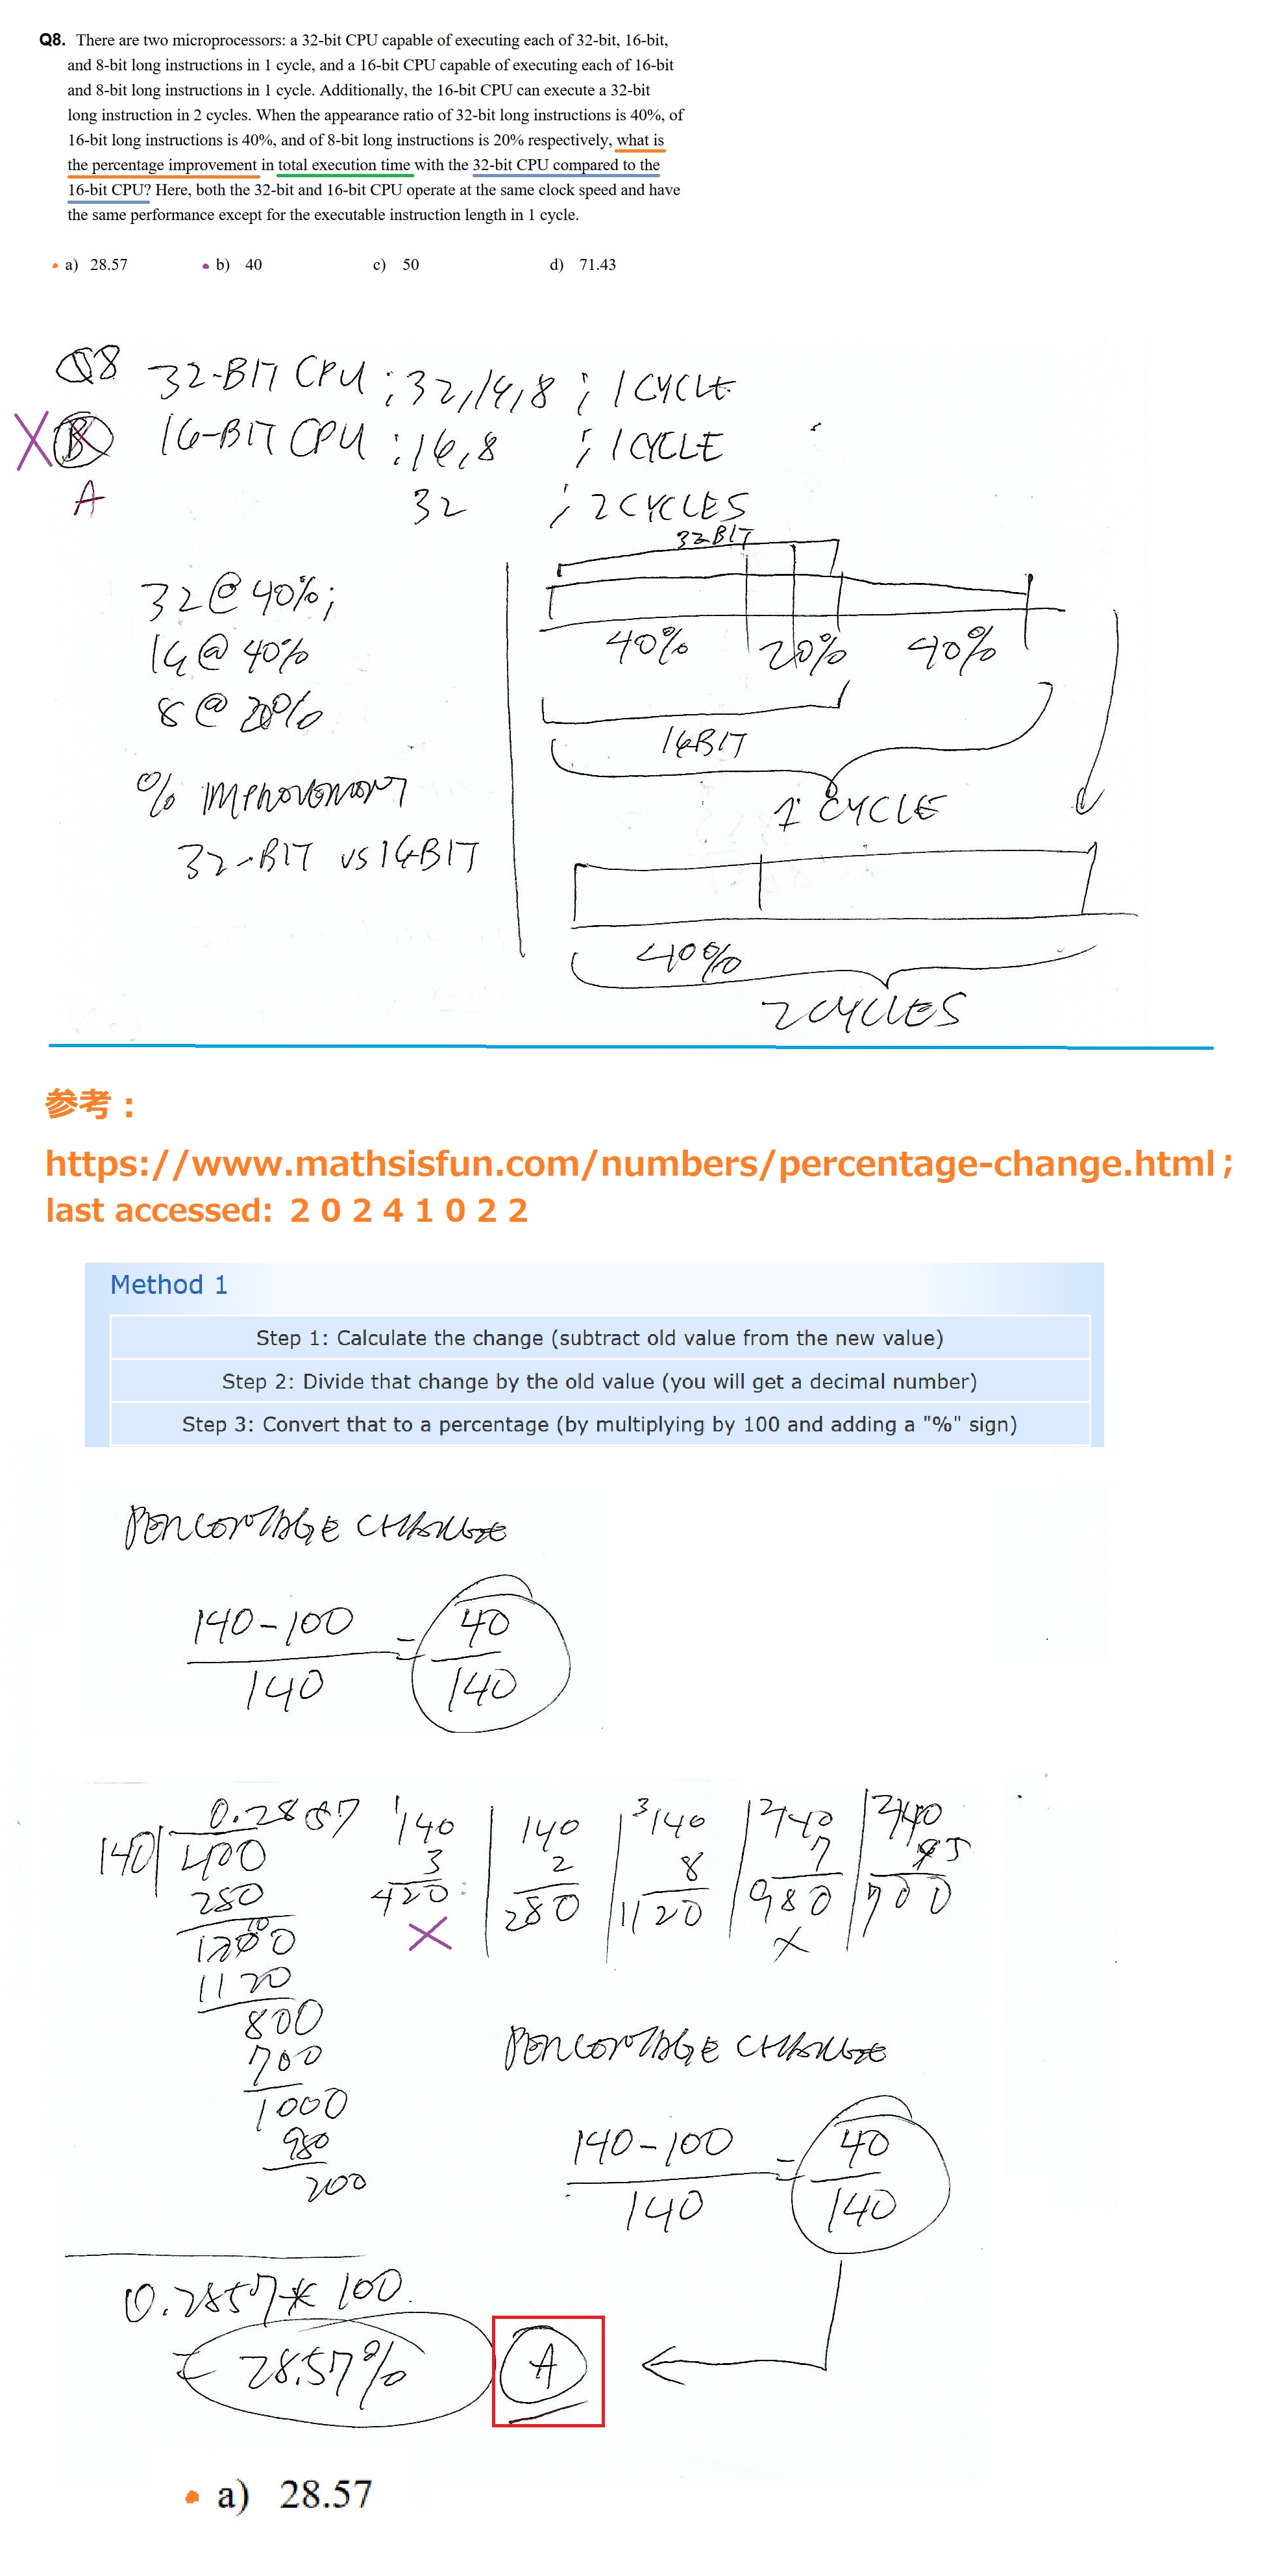 Q8. There are two microprocessors: a 32-bit CPU capable of executing each of 32-bit, 16-bit,
and 8-bit long instructions in 1 cycle, and a 16-bit CPU capable of executing each of 16-bit
and 8-bit long instructions in 1 cycle. Additionally, the 16-bit CPU can execute a 32-bit
long instruction in 2 cycles. When the appearance ratio of 32-bit long instructions is 40%, of
16-bit long instructions is 40%, and of 8-bit long instructions is 20% respectively, what is
the percentage improvement in total execution time with the 32-bit CPU compared to the
16-bit CPU? Here, both the 32-bit and 16-bit CPU operate at the same clock speed and have
the same performance except for the executable instruction length in 1 cycle.
a) 28.57 b) 40 c) 50 d) 71.43
Q8 32-BIT CPU ; 32,16,8 ; 1 CYCLE
X B 16-BIT CPU : 16,8 ; 1 CYCLE
A 32 ; 2 CYCLES
32BIT
32 @ 40%;
16 @ 40%
8 @ 20%
40% 20% 40%
16BIT
% IMPROVEMENT
32-BIT VS 16BIT
1 CYCLE
40%
2 CYCLES
参考：
https://www.mathsisfun.com/numbers/percentage-change.html；
last accessed: ２０２４１０２２
Method 1
Step 1: Calculate the change (subtract old value from the new value)
Step 2: Divide that change by the old value (you will get a decimal number)
Step 3: Convert that to a percentage (by multiplying by 100 and adding a "%" sign)
PERCENTAGE CHANGE
140-100 = 40
140 140
0.2857
140 400
280
1200
1120
800
700
1000
980
200
140
3
420
X
140
2
280
3 140
8
1120
2 140
7
980
X
2 140
5
700
PERCENTAGE CHANGE
140-100 = 40
140 140
0.2857 * 100
= 28.57% A
a) 28.57